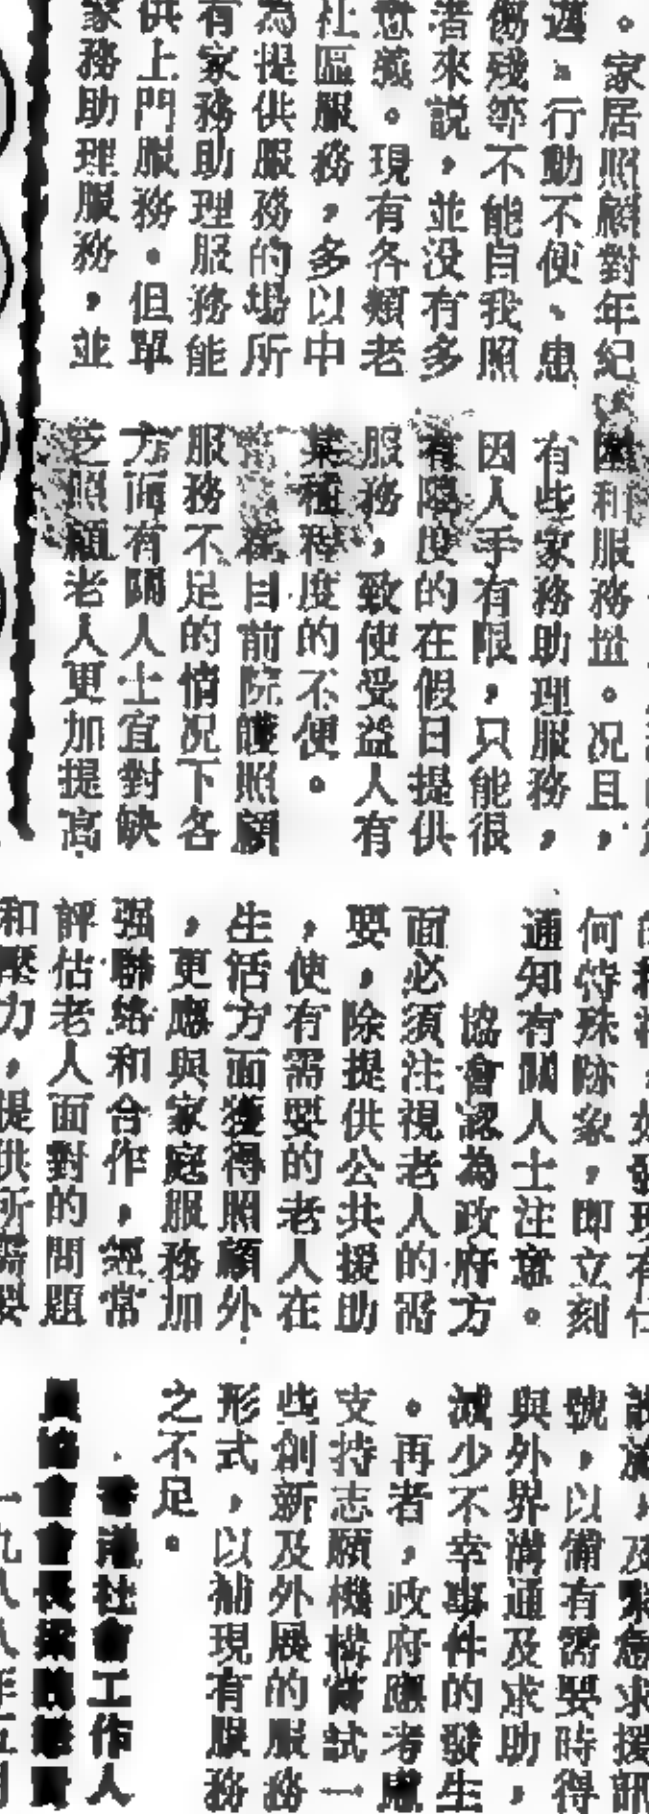 。家居照顧對年紀
邁、行動不便、患
傷殘等不能自我照
者來説，並没有多
意義。現有各類老
社區服務，多以中
為提供服務的場所
有家務助理服務能
供上門服務。但單
家務助理服務，並
和服務量。况且，
有些家務助理服務，
因人手有限，只能很
有限度的在假日提供
服務，致使受益人有
某種程度的不便。
在目前院護照顧
服務不足的情况下各
方面有關人士宜對缺
乏照顧老人更加提高
如發現有任
何特殊跡象，即立刻
通知有關人士注意。
協會認為政府方
面必須注視老人的需
要，除提供公共援助
，使有需要的老人在
生活方面獲得照顧外
，更應與家庭服務加
强聯絡和合作，經常
評估老人面對的問題
和壓力，提供所需要
設施，及緊急求援訊
號，以備有需要時得
與外界溝通及求助，
減少不幸事件的發生
。再者，政府應考慮
支持志願機構嘗試一
些創新及外展的服務
形式，以補現有服務
之不足。
香港社會工作人
員協會會長梁
一九八八年五月